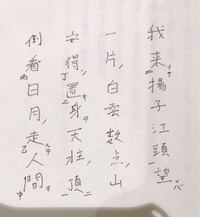 我来揚子江頭望
一片白雲数点山
安得置身天柱頂
倒看日月走人間